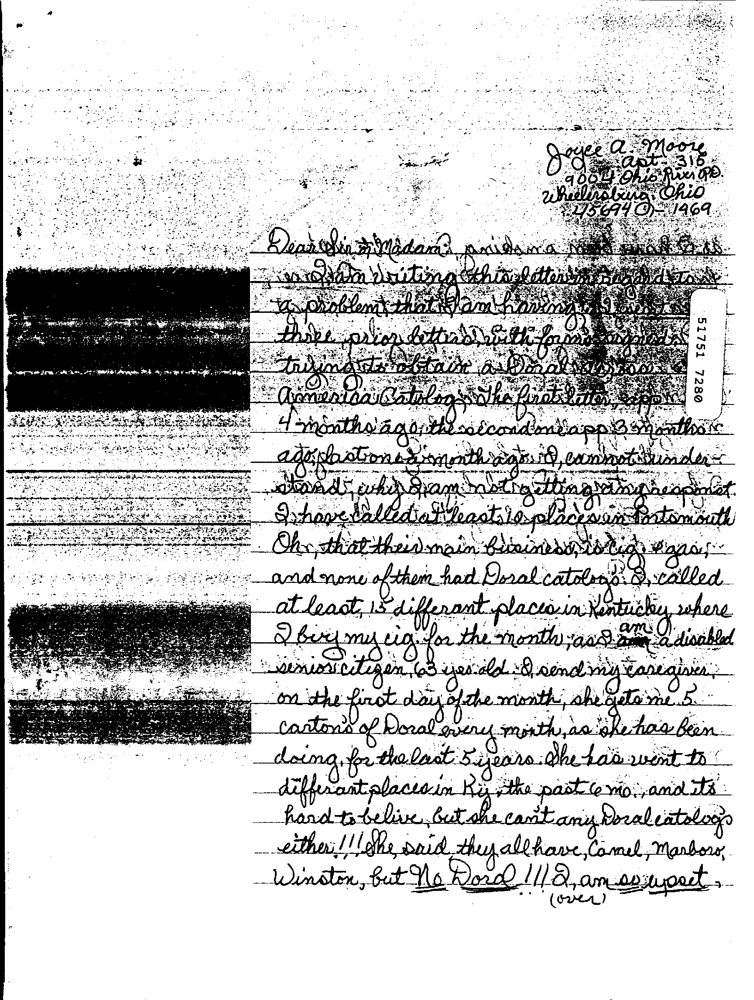 Joyce A. Moore
Apt. 315
9004 Ohio River Rd.
Wheelersburg, Ohio
45694 - 1969
Dear Sir or Madam,
I am writing this letter in regard to
a problem that I am having. I sent
three prior letters, with forms signed
trying to obtain a Doral
America Catalog. The first letter, app.
4 months ago, the second one app 3 months
ago, last one month ago. I, cannot under-
stand, why I am not getting any response.
I have called at least places in Portsmouth
Oh, that their main business, is cig. & gas,
and none of them had Doral catologs. I, called
at least, 15 differant places in Kentucky where
I buy my cig. for the month, as I am a disabled
senior citizen, 63 yrs old. I, send my caregiver,
on the first day of the month, she gets me 5
carton's of Doral every month, as she has been
doing, for the last 5 years. She has went to
differant places in Ky, the past 6 mo., and its
hard to belive, but she can't any Doral catologs
either!!! She, said they all have, Camel, Marboro,
Winston, but No Doral!!! I, am so upset,
(over)
51751 7280